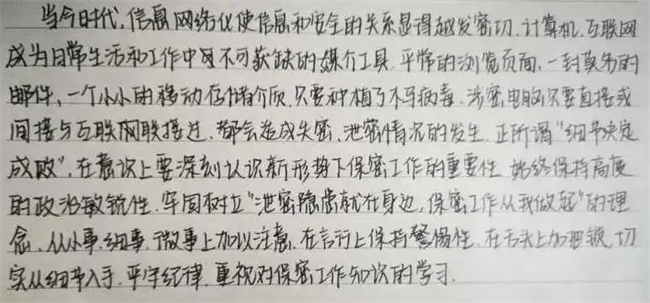 当今时代,信息网络化使信息和安全的关系显得越发密切.计算机、互联网
成为日常生活和工作中不可获缺的媒介工具.平常的浏览页面、一封莫名的
邮件、一个小小的移动存储介质.只要种植了木马病毒.涉密电脑只要直接或
间接与互联网联接过.都会造成失密、泄密情况的发生.正所谓"细节决定
成败",在意识上要深刻认识新形势下保密工作的重要性.始终保持高度
的政治敏锐性.牢固树立"泄密隐患就在身边,保密工作从我做起"的理
念、从小事、细事、微事上加以注意.在言行上保持警惕性.在舌头上加把锁.切
实从细节入手.严守纪律.重视对保密工作知识的学习.